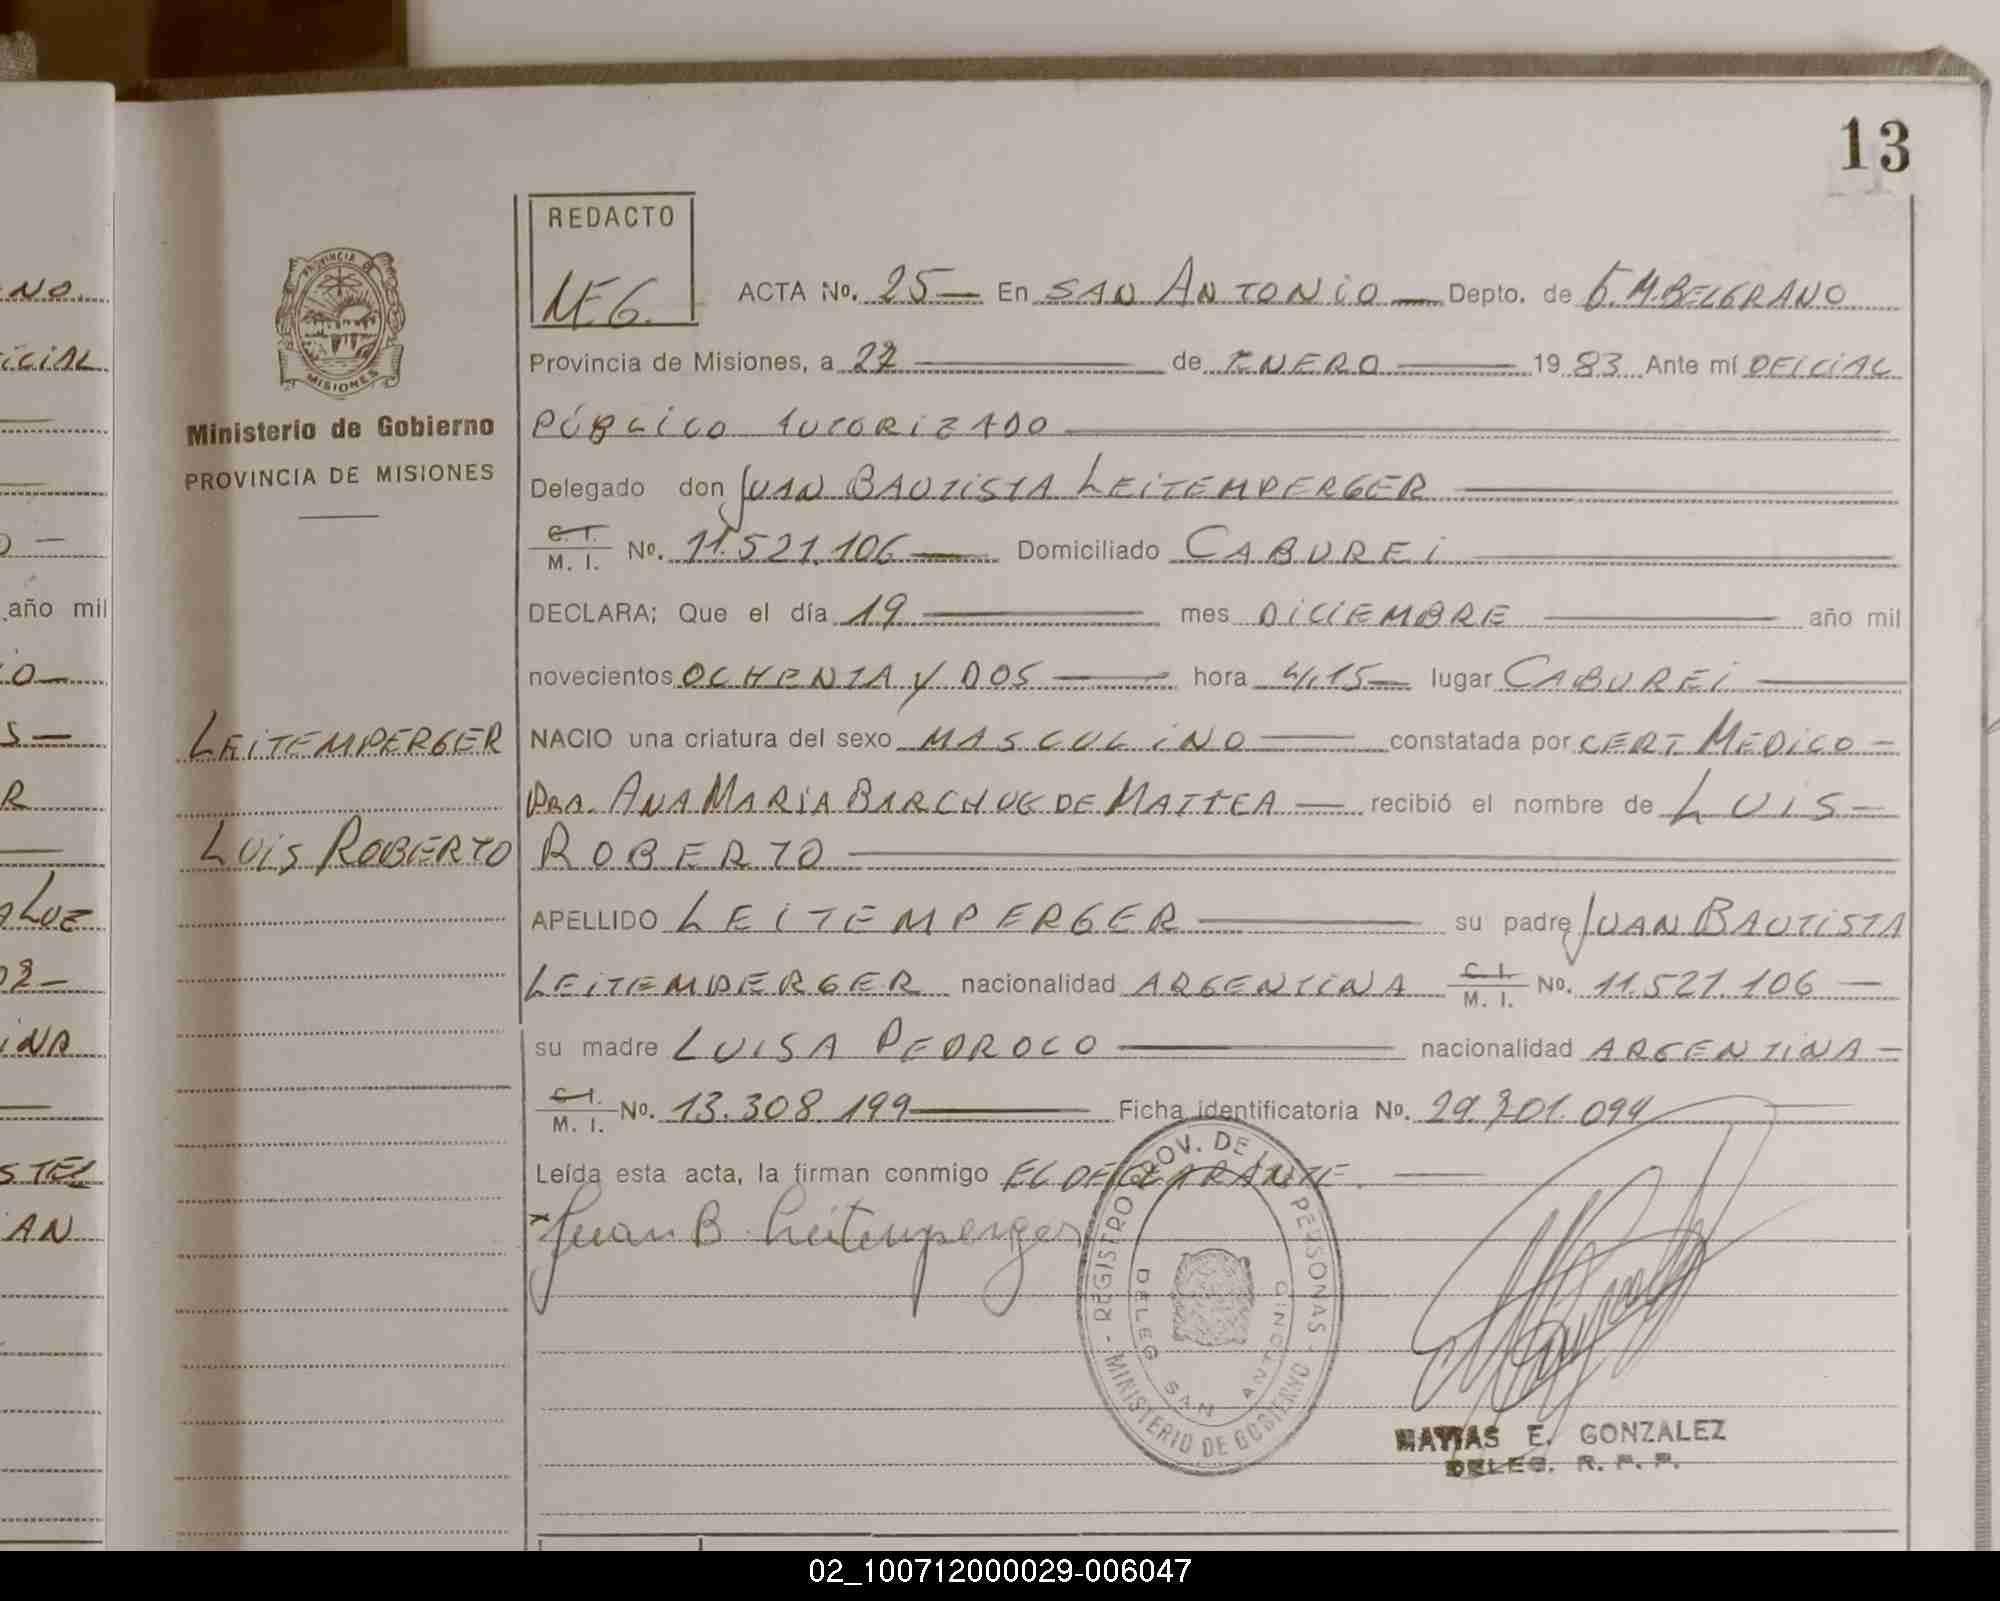 13
REDACTO
M.E.G.
PROVINCIA D
MISIONES
Ministerio de Gobierno
PROVINCIA DE MISIONES
ACTA No. 25— En SAN ANTONIO — Depto. de G.M.BELGRANO
Provincia de Misiones, a 27 — de ENERO — 19 83 Ante mí OFICIAL
PÚBLICO AUTORIZADO
Delegado don JUAN BAUTISTA LEITEMPERGER
C. I.
M. I. No. 11.521.106 — Domiciliado CABUREI
DECLARA; Que el día 19 — mes DICIEMBRE — año mil
novecientos OCHENTA Y DOS — hora 4,15 — lugar CABUREI —
LEITEMPERGER
NACIO una criatura del sexo MASCULINO — constatada por CERT MEDICO —
DRA. ANA MARIA BARCHUK DE MATTEA — recibió el nombre de LUIS —
LUIS ROBERTO
ROBERTO
APELLIDO LEITEMPERGER — su padre JUAN BAUTISTA
LEITEMPERGER nacionalidad ARGENTINA C. I.
M. I. No. 11.521.106 —
su madre LUISA PEDROCO — nacionalidad ARGENTINA —
C. I.
M. I. No. 13.308.199 — Ficha identificatoria No. 29.301.094 —
Leída esta acta, la firman conmigo EL DECLARANTE. —
x Juan B. Leitemperger
REGISTRO PROV. DE L PERSONAS
- MINISTERIO DE GOBIERNO
DELEG SAN ANTONIO
MATIAS E. GONZALEZ
DELEG. R. P. P.
NO.
ICIAL
año mil
IO—
S—
R
LUZ
02—
INA
STEL
AN
02_100712000029-006047